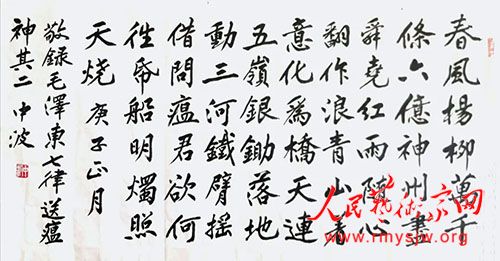 春風楊柳萬千
條六億神州盡
舜堯紅雨隨心
翻作浪青山着
意化爲橋天連
五嶺銀鋤落地
動三河鐵臂搖
借問瘟君欲何
往帋船明燭照
天燒 庚子正月
敬錄毛澤東七律送瘟
神其二 中波
人民艺术家网
www.rmysjw.org